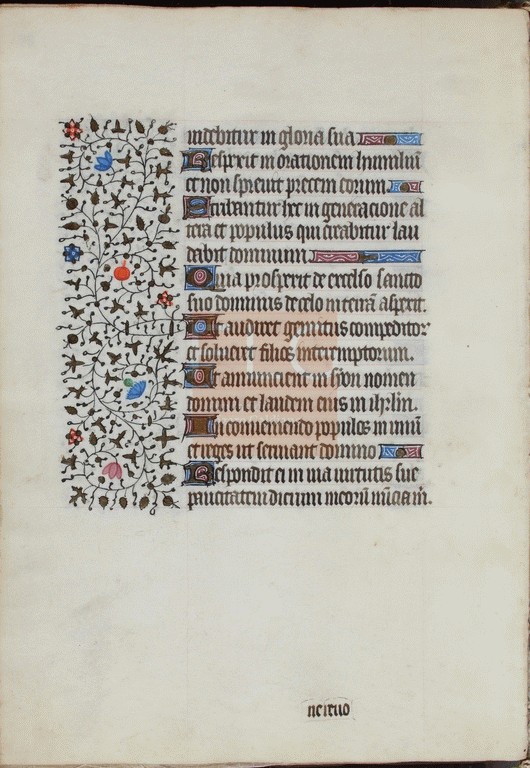 uidebitur in gloria sua
Respexit in orationem humiliũ
et non spreuit precem eorum.
Scribantur hec in generacione al
tera et populus qui creabitur lau
dabit dominum
Quia prospexit de excelso sancto
suo dominus de celo in terrã aspexit.
Ut audiret gemitus compeditorʼ
et solueret filios interemptorum.
Ut annuncient in syon nomen
domini et laudem eius in ihrlm.
In conueniendo populos in unũ
et reges ut seruiant domino
Respondit ei in uia uirtutis sue
paucitatem dierum meorũ nũcia m̃.
ne reuo